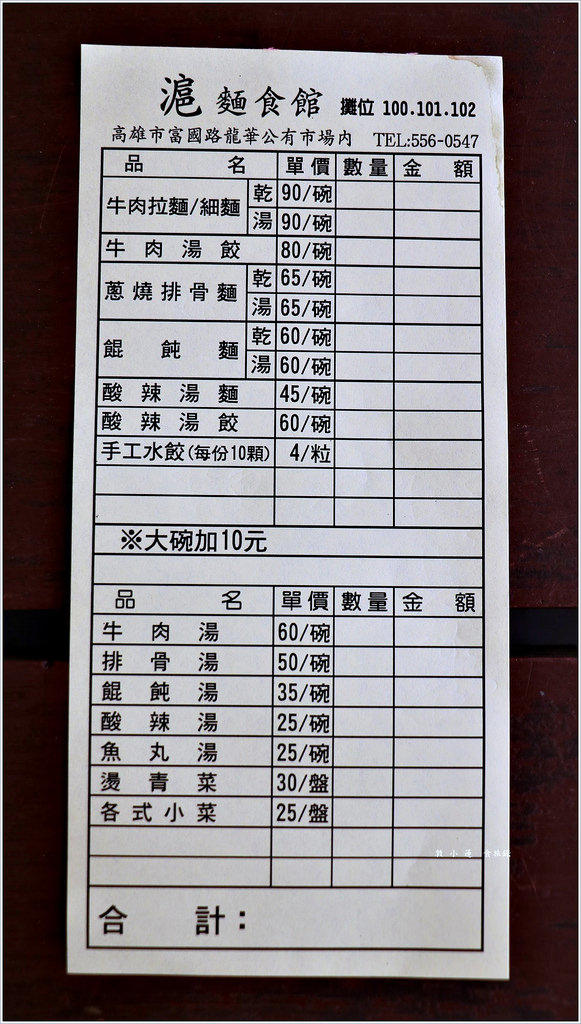 滬 麵食館 攤位 100.101.102
高雄市富國路龍華公有市場內 TEL:556-0547
品名 單價 數量 金額
牛肉拉麵/細麵 乾 90/碗
湯 90/碗
牛肉湯餃 80/碗
蔥燒排骨麵 乾 65/碗
湯 65/碗
餛飩麵 乾 60/碗
湯 60/碗
酸辣湯麵 45/碗
酸辣湯餃 60/碗
手工水餃(每份10顆) 4/粒
※大碗加10元
品名 單價 數量 金額
牛肉湯 60/碗
排骨湯 50/碗
餛飩湯 35/碗
酸辣湯 25/碗
魚丸湯 25/碗
燙青菜 30/盤
各式小菜 25/盤
合計：